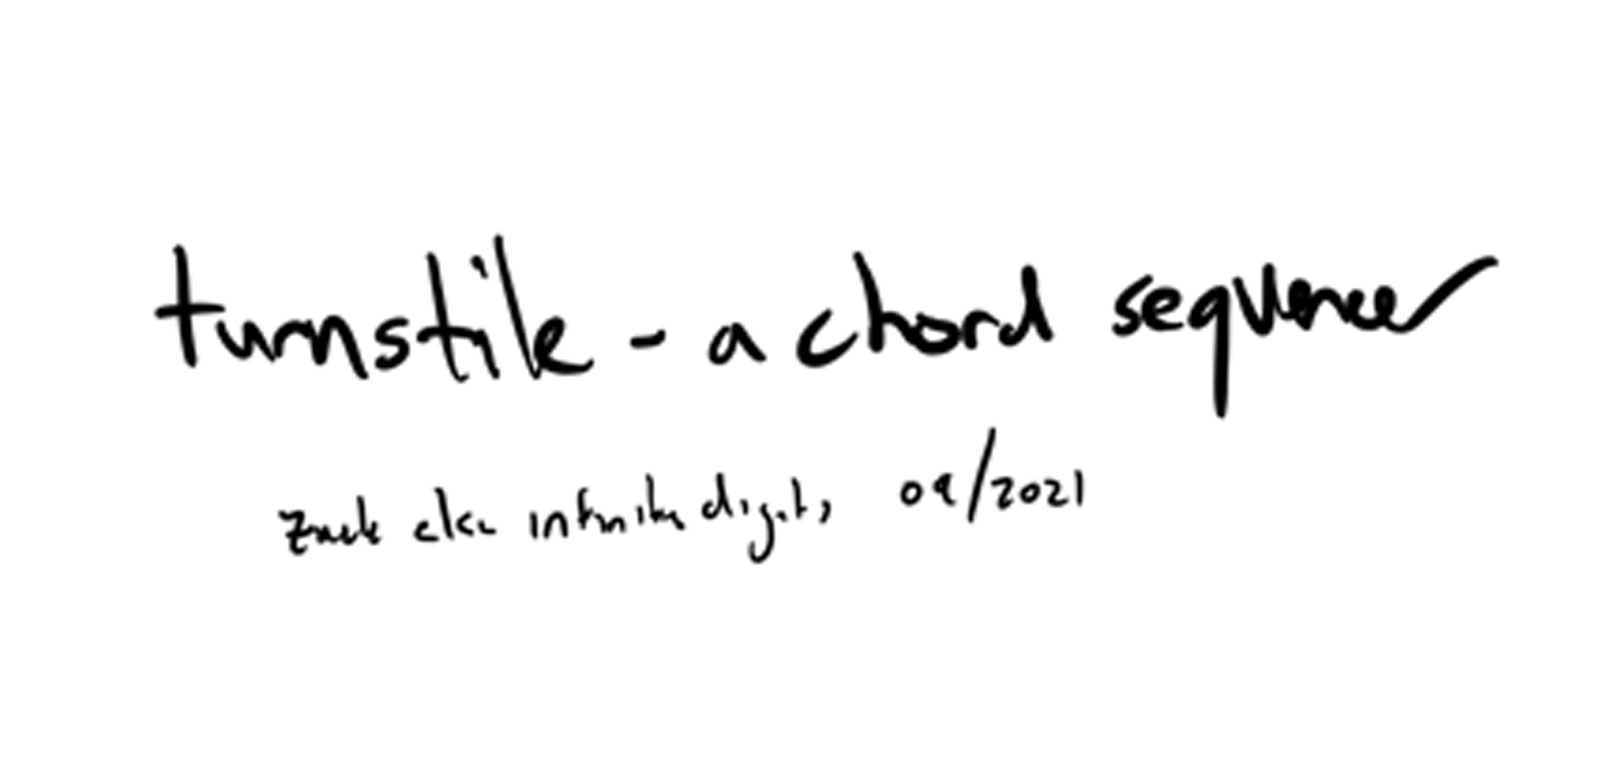 turnstile - a chord sequencer
zack aka infinite digits, 09/2021